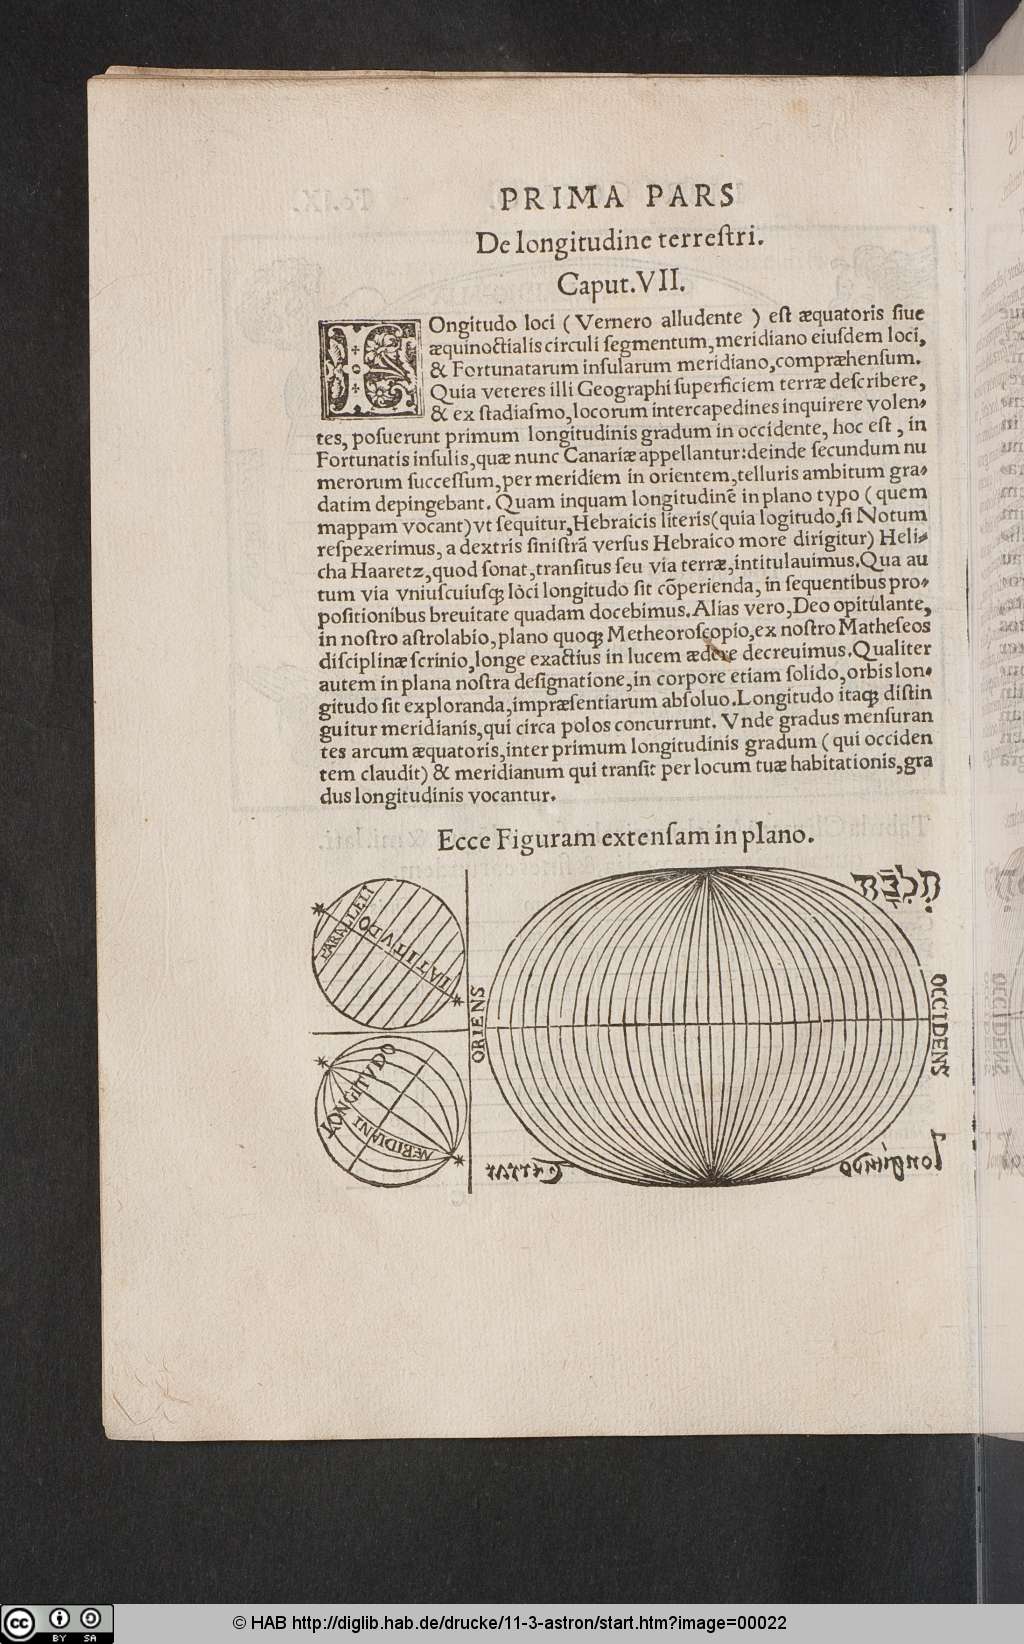 PRIMA PARS
De longitudine terreſtri.
Caput.VII.
LOngitudo loci ( Vernero alludente ) eſt æquatoris ſiue
æquinoctialis circuli ſegmentum, meridiano eiuſdem loci,
& Fortunatarum inſularum meridiano, compræhenſum.
Quia veteres illi Geographi ſuperficiem terræ deſcribere,
& ex ſtadiaſmo, locorum intercapedines inquirere volen-
tes, poſuerunt primum longitudinis gradum in occidente, hoc eſt , in
Fortunatis inſulis, quæ nunc Canariæ appellantur: deinde ſecundum nu
merorum ſucceſſum, per meridiem in orientem, telluris ambitum gra-
datim depingebant. Quam inquam longitudinē in plano typo ( quem
mappam vocant) vt ſequitur, Hebraicis literis (quia lōgitudo, ſi Notum
reſpexerimus, a dextris ſiniſtrā verſus Hebraico more dirigitur) Heli-
cha Haaretz, quod ſonat, tranſitus ſeu via terræ, intitulauimus. Qua au
tum via vniuſcuiuſqꝫ lòci longitudo ſit cōperienda, in ſequentibus pro-
poſitionibus breuitate quadam docebimus. Alias vero, Deo opitulante,
in noſtro aſtrolabio, plano quoqꝫ Metheoroſcopio, ex noſtro Matheſeos
diſciplinæ ſcrinio, longe exactius in lucem ædere decreuimus. Qualiter
autem in plana noſtra deſignatione, in corpore etiam ſolido, orbis lon-
gitudo ſit exploranda, impræſentiarum abſoluo. Longitudo itaqꝫ diſtin
guitur meridianis, qui circa polos concurrunt. Vnde gradus menſuran
tes arcum æquatoris, inter primum longitudinis gradum ( qui occiden
tem claudit) & meridianum qui tranſit per locum tuæ habitationis, gra
dus longitudinis vocantur.
Ecce Figuram extenſam in plano.
PARALLELI
LATITVDO
LONGITVDO
MERIDIANI
ORIENS
OCCIDENS
Longitudo
Terrae
© HAB http://diglib.hab.de/drucke/11-3-astron/start.htm?image=00022
cc
BY SA